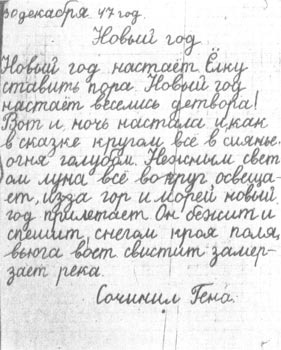 30 декабря 47 год.
Новый год
Новый год настаёт Ёлку
ставить пора. Новый год
настаёт веселись детвора!
Вот и ночь настала и, как
в сказке кругом всё в сиянье.
огня голубом. Нежным свет
ом луна всё вокруг освеща-
ет, изза гор и морей новый
год прилетает. Он бежит и
спешит, снегом кроя поля,
вьюга воет свистит замер-
зает река.
Сочинил Гена.